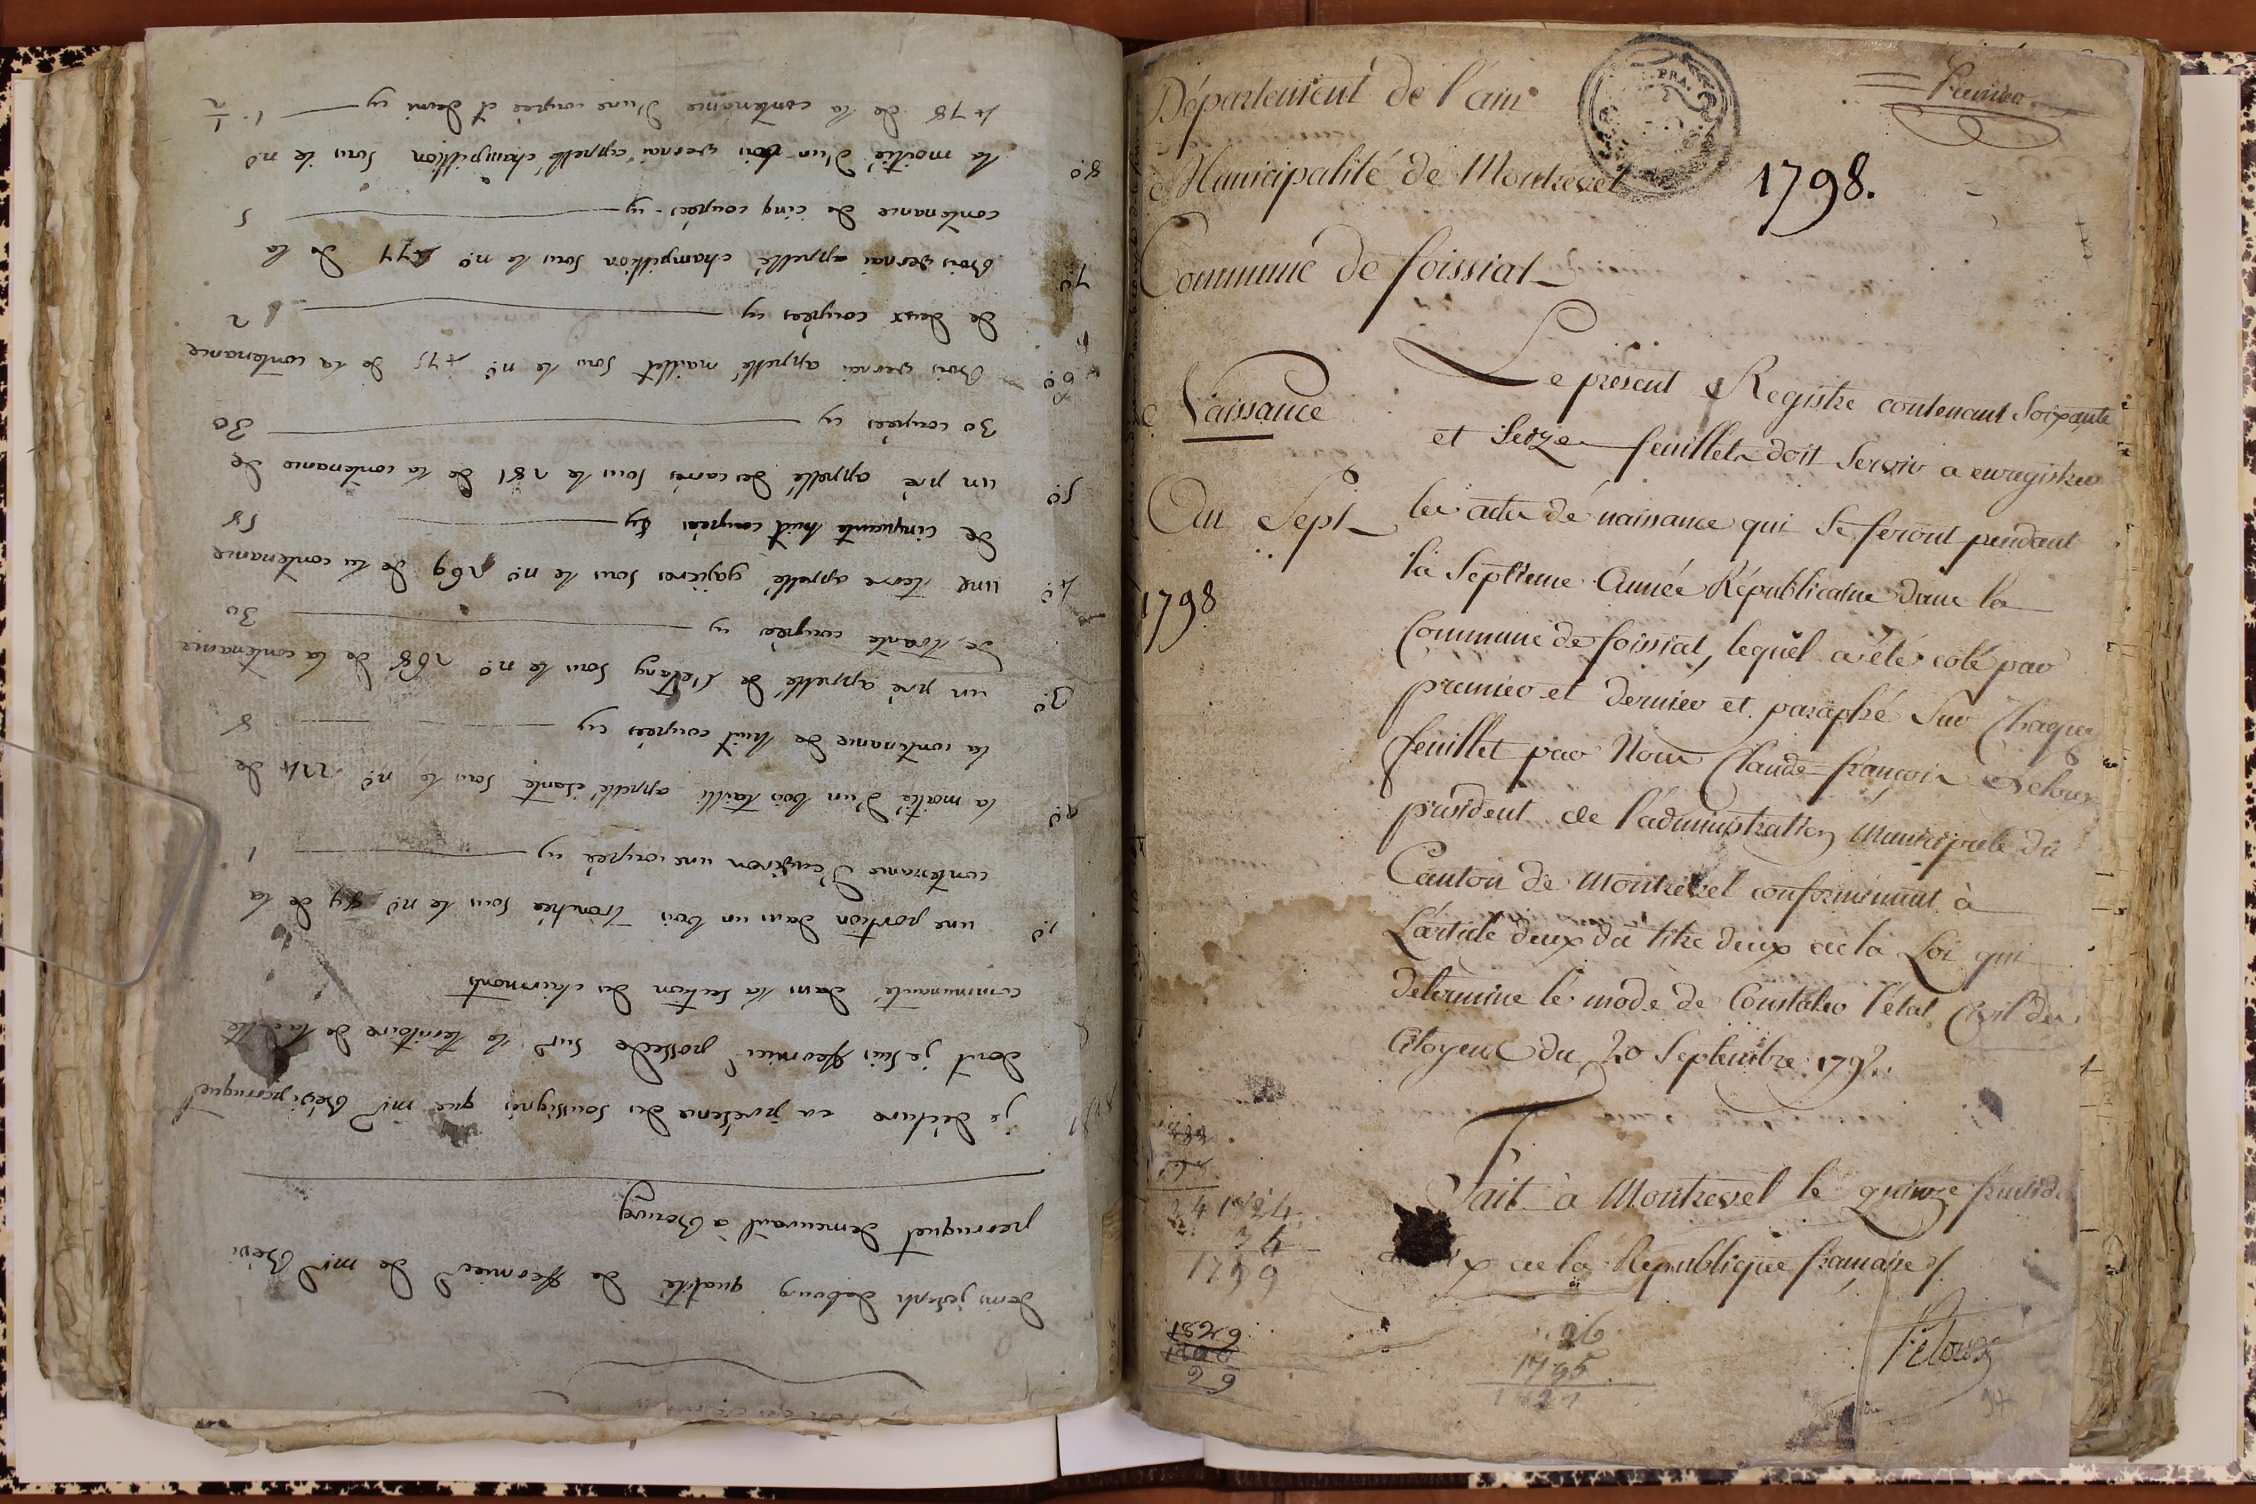 denis joseph debourg qualité de fermier de mr Bévi
perruquet demeurant à Bourg
je déclare en présence des soussignés que mr Bévi perruquet
dont je suis fermier possede sur le territoire de la dte
communauté dans la section des clairmonts
1o. une portion dans un bois tronchés sous le no de la
contenance d'environ une coupée cy 1
2o. la moitié d'un bois tailli appellé sous le no 224 de
la contenance de huit coupées cy 8
3o. un pré appellé de l'etang sous le no 268 de la contenance
de trante coupées cy 30
4o. une terre appellé gajieres sous le no 269 de la contenance
de cinquante huit coupées cy 58
5o. un pré appellé des carres sous le 281 de la contenance de
30 coupées cy 30
6o. Bois vernai appellé maillet sous le no 475 de la contenance
de deux coupées cy 2
7o. Bois vernai appellé champillion sous le no 477 de la
contenance de cinq coupées cy 5
8o. la moitié d'un bois vernai appellé champillion sous le no
478 de la contenance d'une coupée et demi cy 1. 1/2
Département de l'ain
Premier
Municipalité de Montrevel
1798.
Commune de foissiat
Naissance
An Sept
1798
Le présent Registre contenant Soixante
et Seize feuillets doit Servir a enregistrer
les actes de naissance qui Se feront pendant
la Septieme Année Républicaine dans la
Commune de foissiat, lequel a été coté par
premier et dernier et paraphé Sur Chaque
feuillet par Nous Claude-françois
président de l'administration Municipale du
Canton de Montrevel conformément à
L'article deux du titre deux de la Loi qui
détermine le mode de Constater l'état Civil des
Citoyens du 20 Septembre 1792.
Fait à Montrevel le quinze fructid
de la République française
24 1824
24
1799
26
1795
1821